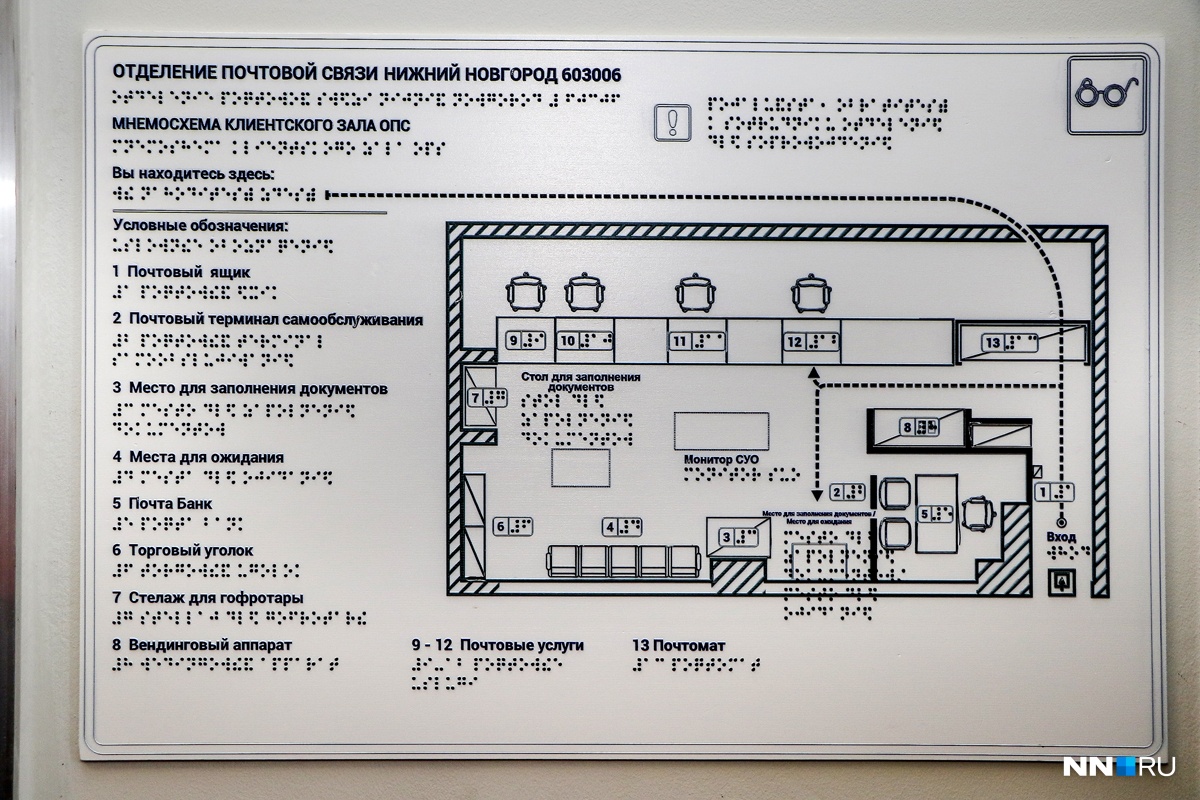 ОТДЕЛЕНИЕ ПОЧТОВОЙ СВЯЗИ НИЖНИЙ НОВГОРОД 603006
МНЕМОСХЕМА КЛИЕНТСКОГО ЗАЛА ОПС
Вы находитесь здесь:
Условные обозначения:
1 Почтовый ящик
2 Почтовый терминал самообслуживания
3 Место для заполнения документов
4 Места для ожидания
5 Почта Банк
6 Торговый уголок
7 Стелаж для гофротары
8 Вендинговый аппарат
9 - 12 Почтовые услуги
13 Почтомат
9
10
11
12
13
7
Стол для заполнения
документов
8
Монитор СУО
2
1
Место для заполнения документов /
Место для ожидания
5
6
4
3
Вход
NN RU